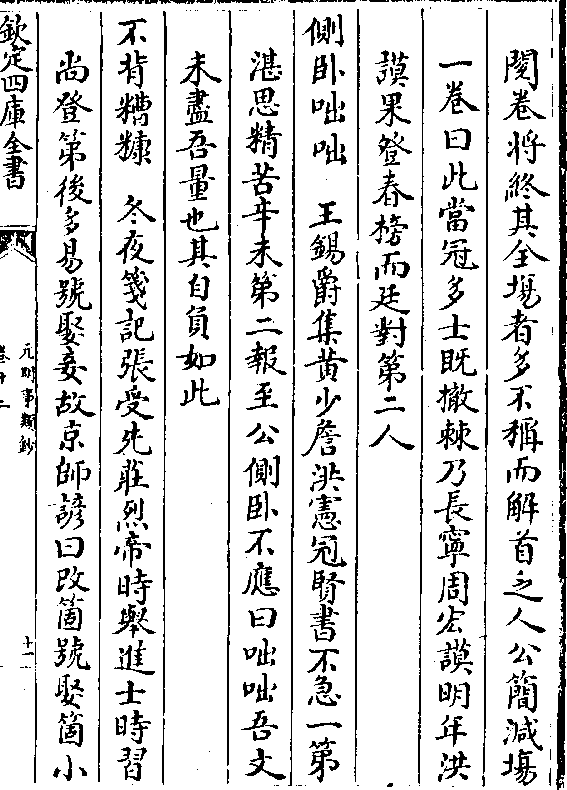 閱卷將終其全塲者多不稱而解首乏人公簡減塲
一卷曰此當冠多士既撤棘乃長寧周宏謨明年洪
謨果登春榜而廷對第二人
側卧咄咄　王錫爵集黄少詹洪憲冠賢書不急一第
湛思精苦辛未第二報至公側卧不應曰咄咄吾文
未盡吾量也其自負如此
不背糟糠　冬夜箋記張受先莊烈帝時舉進士時習
尚登第後多易號娶妾故京師諺曰改箇號娶箇小
欽定四庫全書
元明事類鈔
卷十二
十一